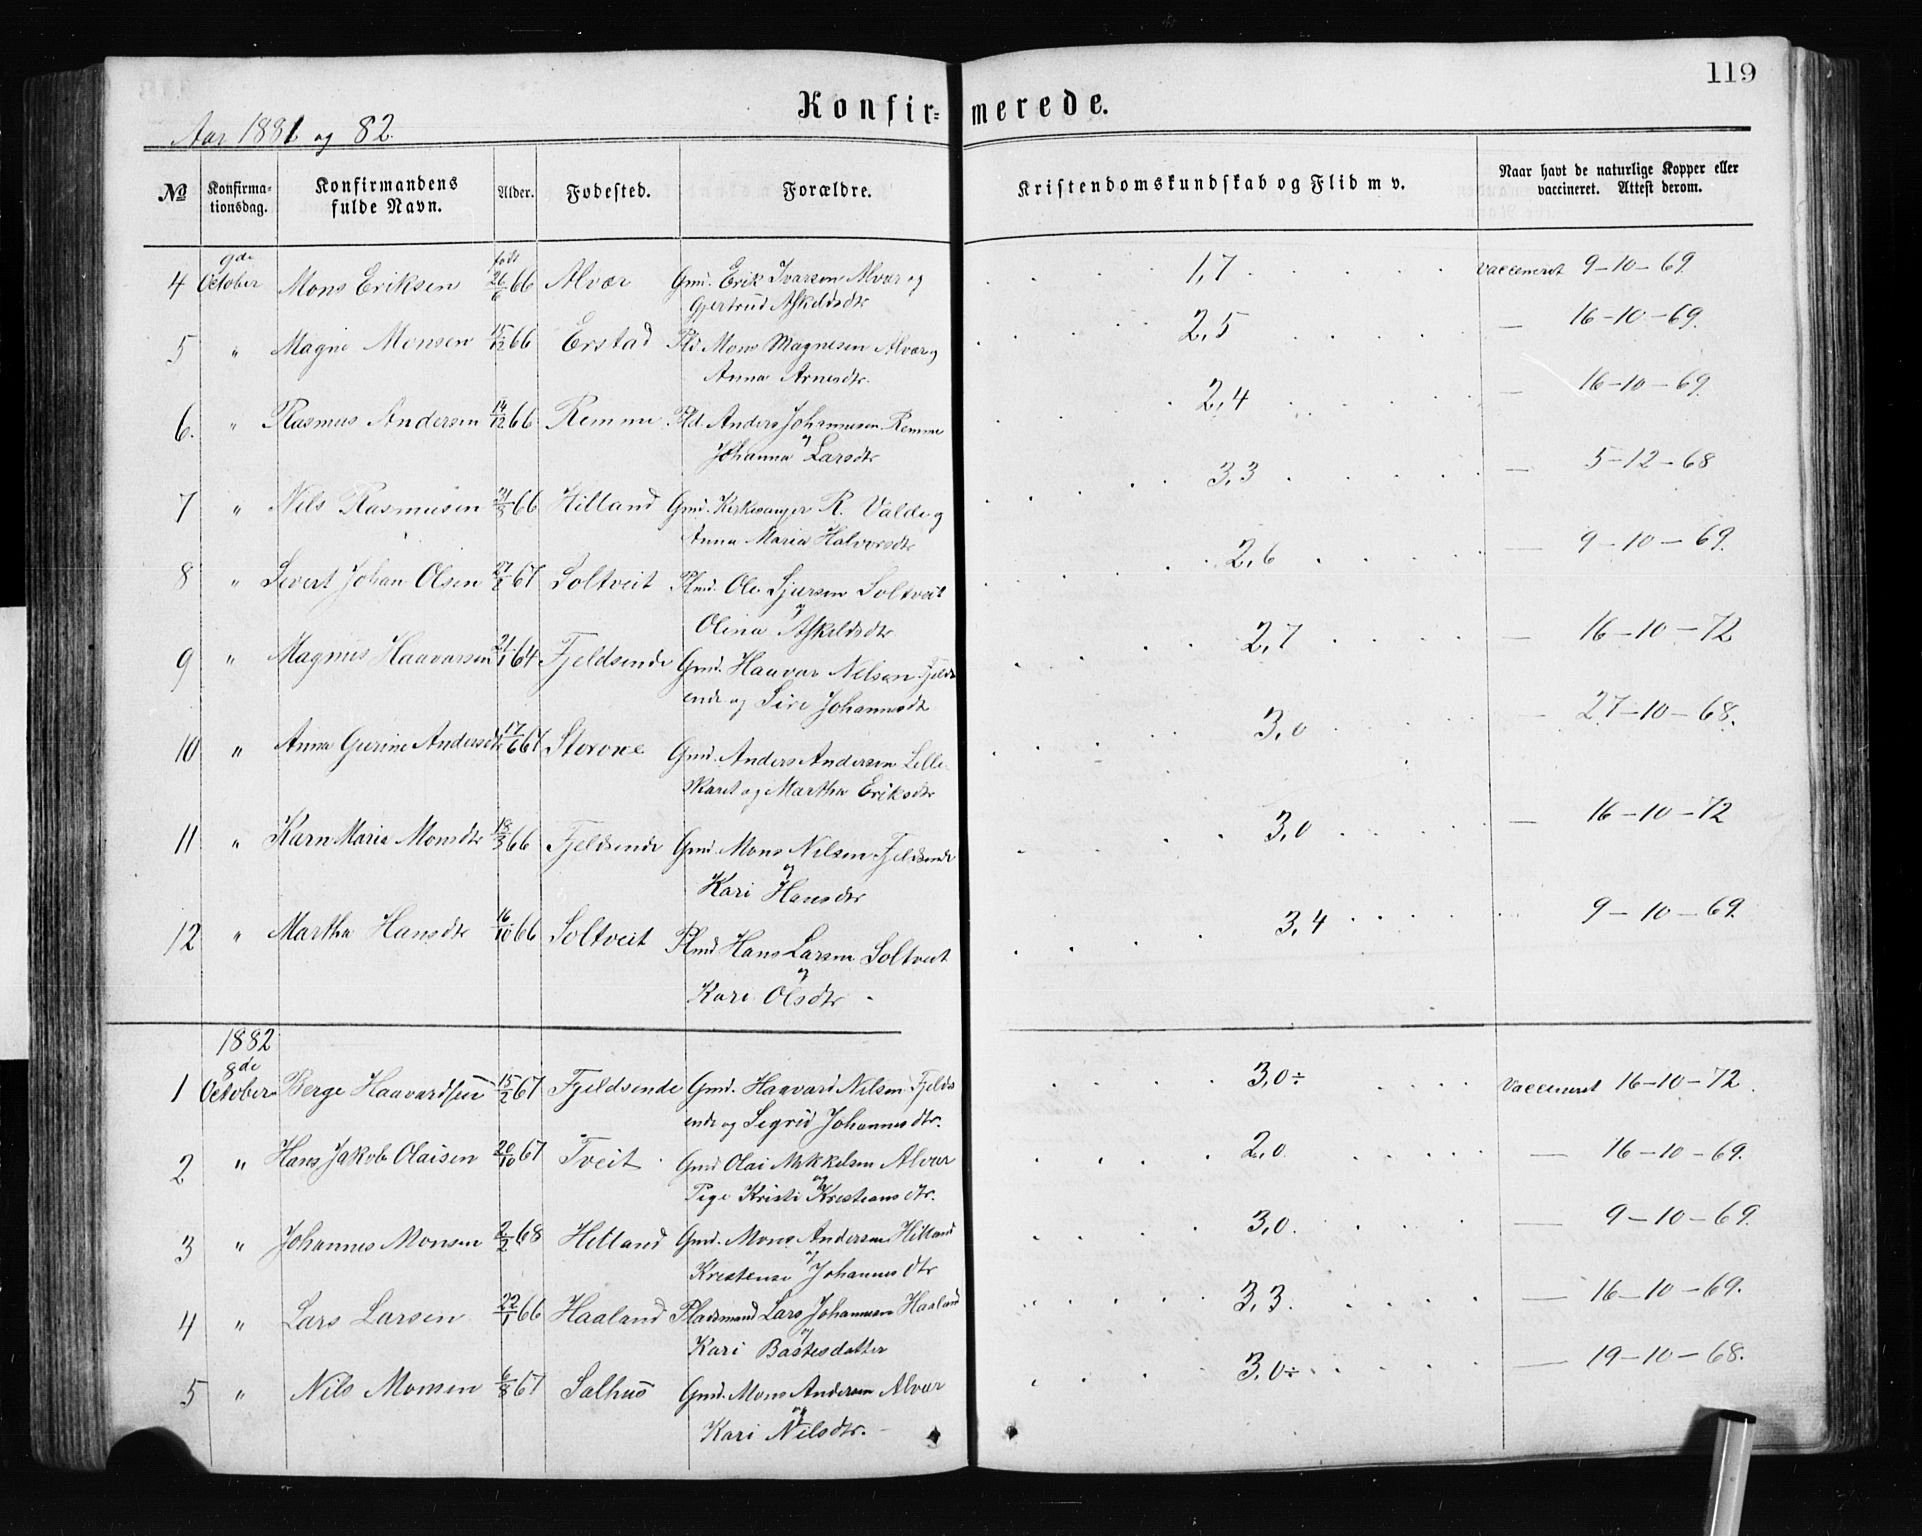 119
Konfir=merede.
Aar 1881 og 82.
№ Konfirma-tionsdag. Konfirmandens fulde Navn. Alder. Fodested. Forældre. Kristendomskundskab og Flid m v. Naar havt de naturlige Kopper eller vaccineret. Attest derom.
4 9de October Mons Eriksen født 26/6 66 Alvær Gmd. Erik Ivarsen Alvær og 1,7 vacceneret 9-10-69.
Gjertrud Askeldsdtr
5 " Magne Monsen 15/12 66 Erstad Pld. Mons Magnesen Alvær og 2,5 — 16-10-69.
Anna Arnesdtr.
6. " Rasmus Andersen 14/12 66 Remme Pld. Anders Johannesen Remme 2,4 — 16-10-69.
og
Johanna Larsdtr
7 " Nils Rasmusen 66 Hilland Gmd. Kirkesanger R. Valde og 3,3 — 5-12-68
Anna Maria Halvorsdtr
8 " Sivert Johan Olsen 67 Soltveit Plmd. Ole Sjursen Soltveit 2,6 — 9-10-69.
og
Olina Askeldsdtr
9 " Magnus Haavarsen 21/1 64 Fjeldsende Gmd. Haavar Nilsen Fjelds 2,7 — 16-10-72
ende og Siri Johannesdtr
10 " Anna Gurine Andersdtr 17/6 67 Storoxe Gmd. Anders Andersen Lille- 3,0 — 27-10-68.
skaret og Martha Eriksdtr
11 " Karn Maria Monsdtr 18/3 66 Fjeldsende Gmd. Mons Nilsen Fjeldsende 3,0 — 16-10-72
og
Kari Hansdtr
12 " Martha Hansdtr 16/10 66 Soltveit Plmd Hans Larsen Soltveit 3,4 9-10-69.
og
Kari Olsdtr -
1882
1 8de October Berge Haavardsen 15/2 67 Fjeldsende Gmd. Haavard Nilsen Fjelds 3,0÷ Vacceneret 16-10-72.
ende og Segrid Johannesdtr.
2 " Hans Jakob Olaisen 20/10 67 Tveit Gmd Olai Mikkelsen Alvær 2,0 — 16-10-69.
og
Pige Kristi Kristiansdtr.
3 " Johannes Monsen 2/2 68 Hilland Gmd. Mons Andersen Hilland 3,0. — 9-10-69.
og
Kristense Johannesdtr
4 " Lars Larsen 22/1 66 Haaland Pladsmand Lars Johannesen Haaland 3,3. — 16-10-69.
og
Kari Bastesdatter
5 " Nils Monsen 6/8 67 Salhus Gmd. Mons Andersen Alvær 3,0÷ — 19-10-68.
og
Kari Nilsdtr. -